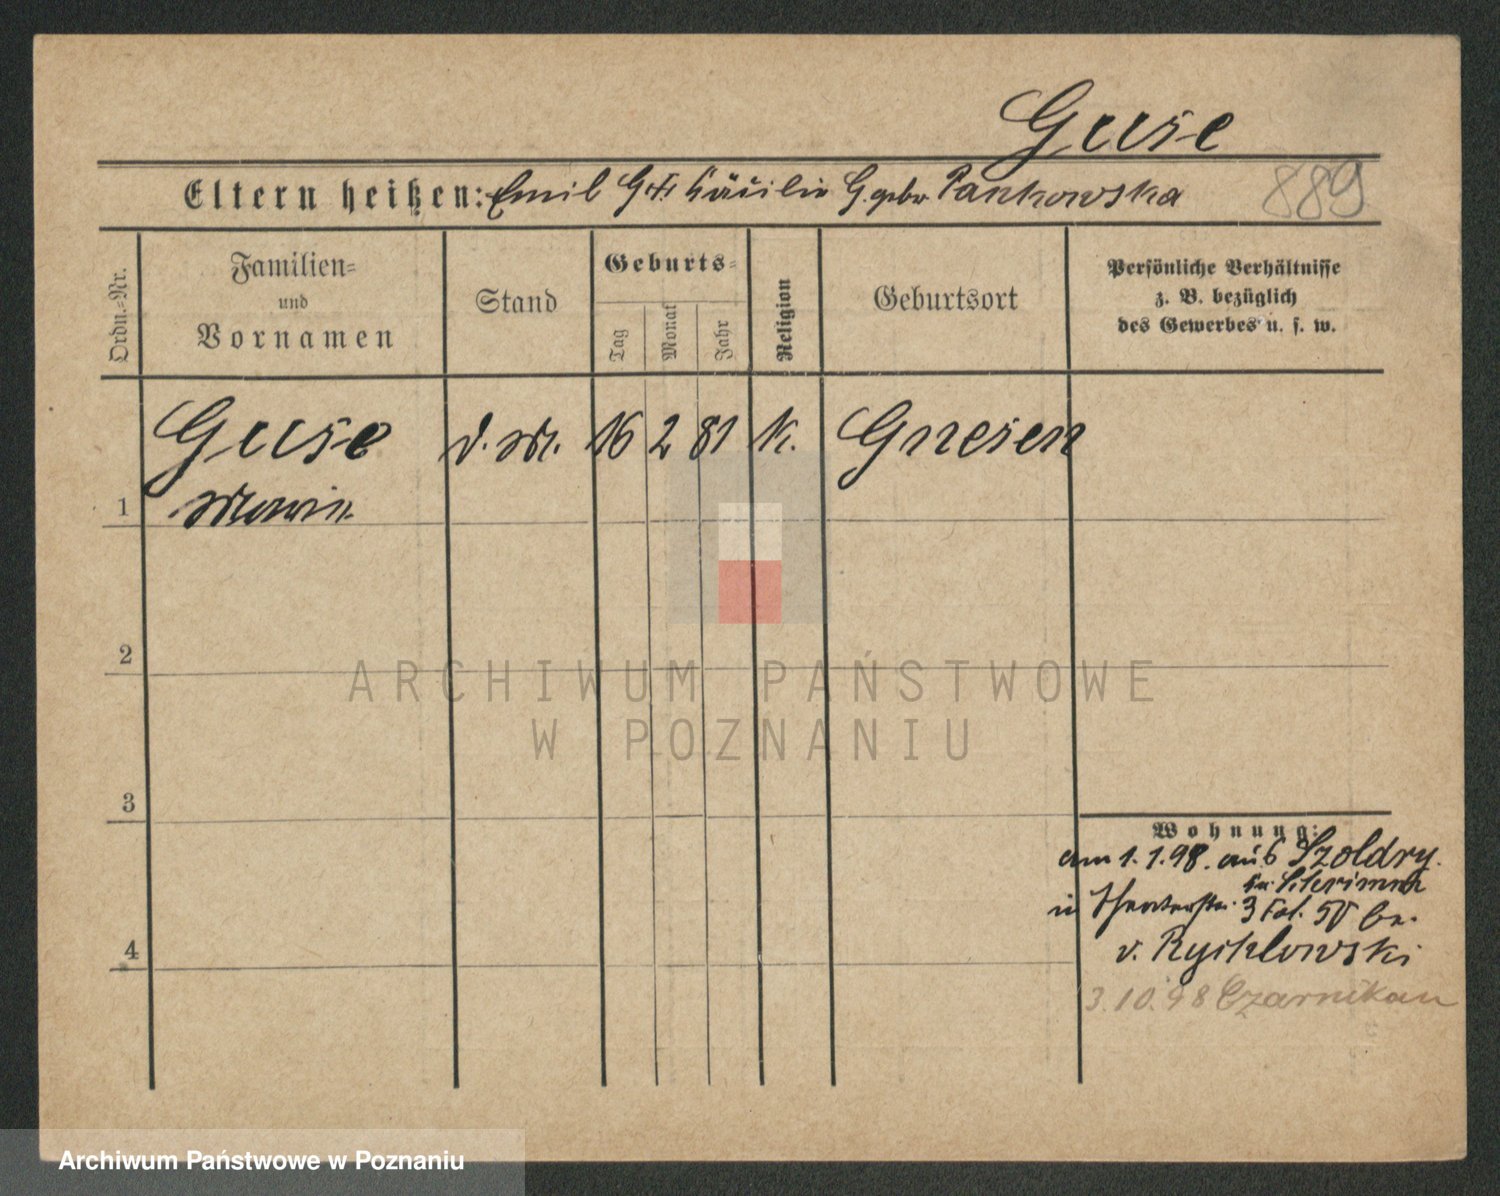 Guse
Eltern heißen: Emil G. Cäcilie G. gebor Pankowska 889
Ordn.-Nr.
Familien-
und
Vornamen
Stand
Geburts-
Tag
Monat
Jahr
Religion
Geburtsort
Persönliche Verhältnisse
z. B. bezüglich
des Gewerbes u. s. w.
Guse d. M. 16 2 81 k. Gnesen
1 Marie
2
3
4
Wohnung:
am 1.1.98. aus Szoldry.
Schrimm
in Theaterstr. 3 bei
v. Rychlowski
3.10.98 Czarnikau
ARCHIWUM PAŃSTWOWE
W POZNANIU
Archiwum Państwowe w Poznaniu